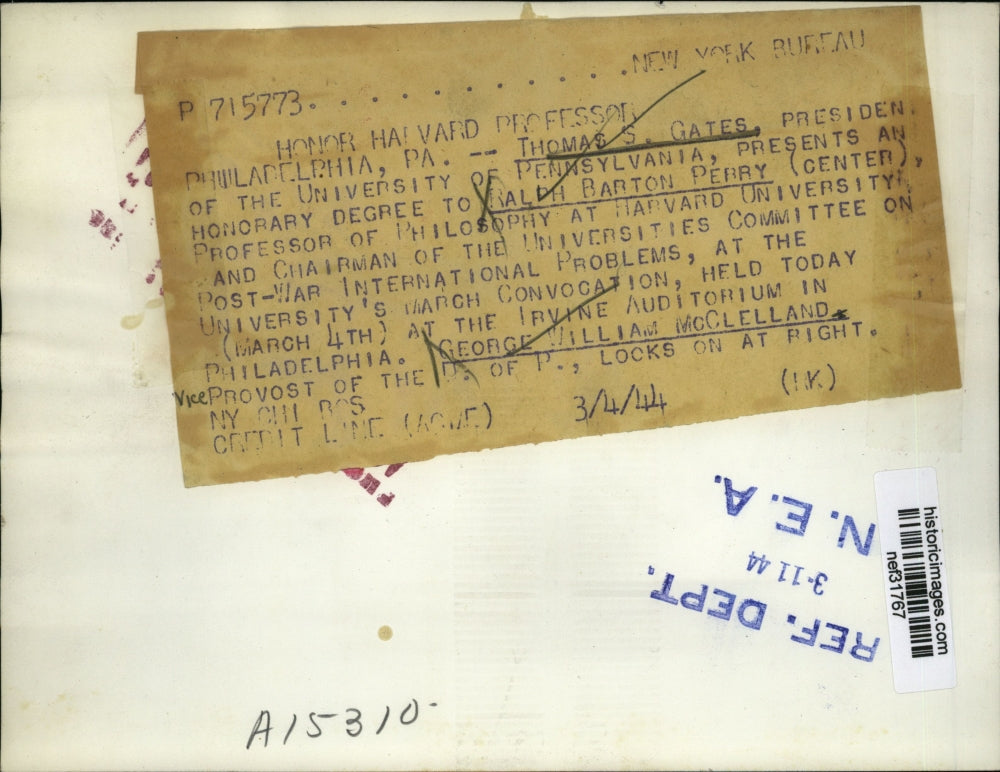 P 715773. . . . . . . . . . .NEW YORK BUREAU
HONOR HARVARD PROFESSOR
PHILADELPHIA, PA. -- THOMAS S. GATES, PRESIDENT
OF THE UNIVERSITY OF PENNSYLVANIA, PRESENTS AN
HONORARY DEGREE TO RALPH BARTON PERRY (CENTER),
PROFESSOR OF PHILOSOPHY AT HARVARD UNIVERSITY,
AND CHAIRMAN OF THE UNIVERSITIES COMMITTEE ON
POST-WAR INTERNATIONAL PROBLEMS, AT THE
UNIVERSITY'S MARCH CONVOCATION, HELD TODAY
(MARCH 4TH) AT THE IRVINE AUDITORIUM IN
PHILADELPHIA. GEORGE WILLIAM MCCLELLAND,
Vice PROVOST OF THE U. OF P., LOOKS ON AT RIGHT.
NY CHI BOS
CREDIT LINE (ACME) 3/4/44 (HK)
N.E.A.
3-11 44
REF. DEPT.
historicimages.com
nef31767
A15310